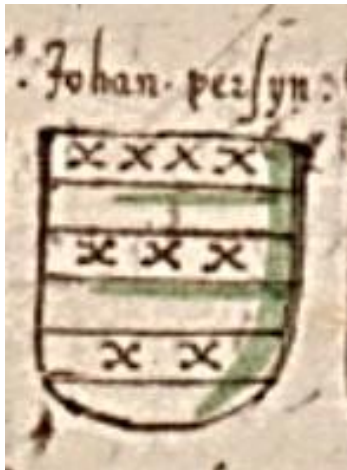 Johan · persyn :